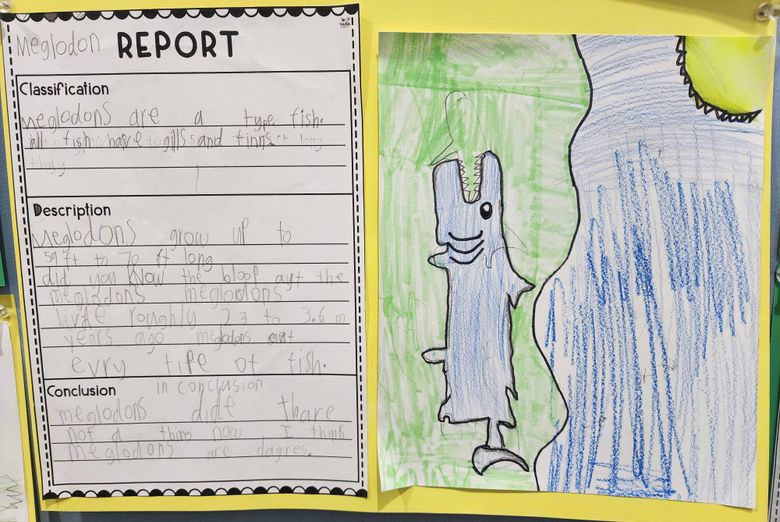 Meglodon REPORT
Classification
Meglodons are a type fish.
all fish have gills and finns
they
Description
Meglodons grow up to
59 ft to 70 ft long
did you know the bloop ayt the
meglodons meglodons
livde roughly 23 to 3.6 m
years ago meglodons eat
evry tipe of fish.
Conclusion in conclusion
meglodons dide thare
not a thim now I think
meglodons are dagres.